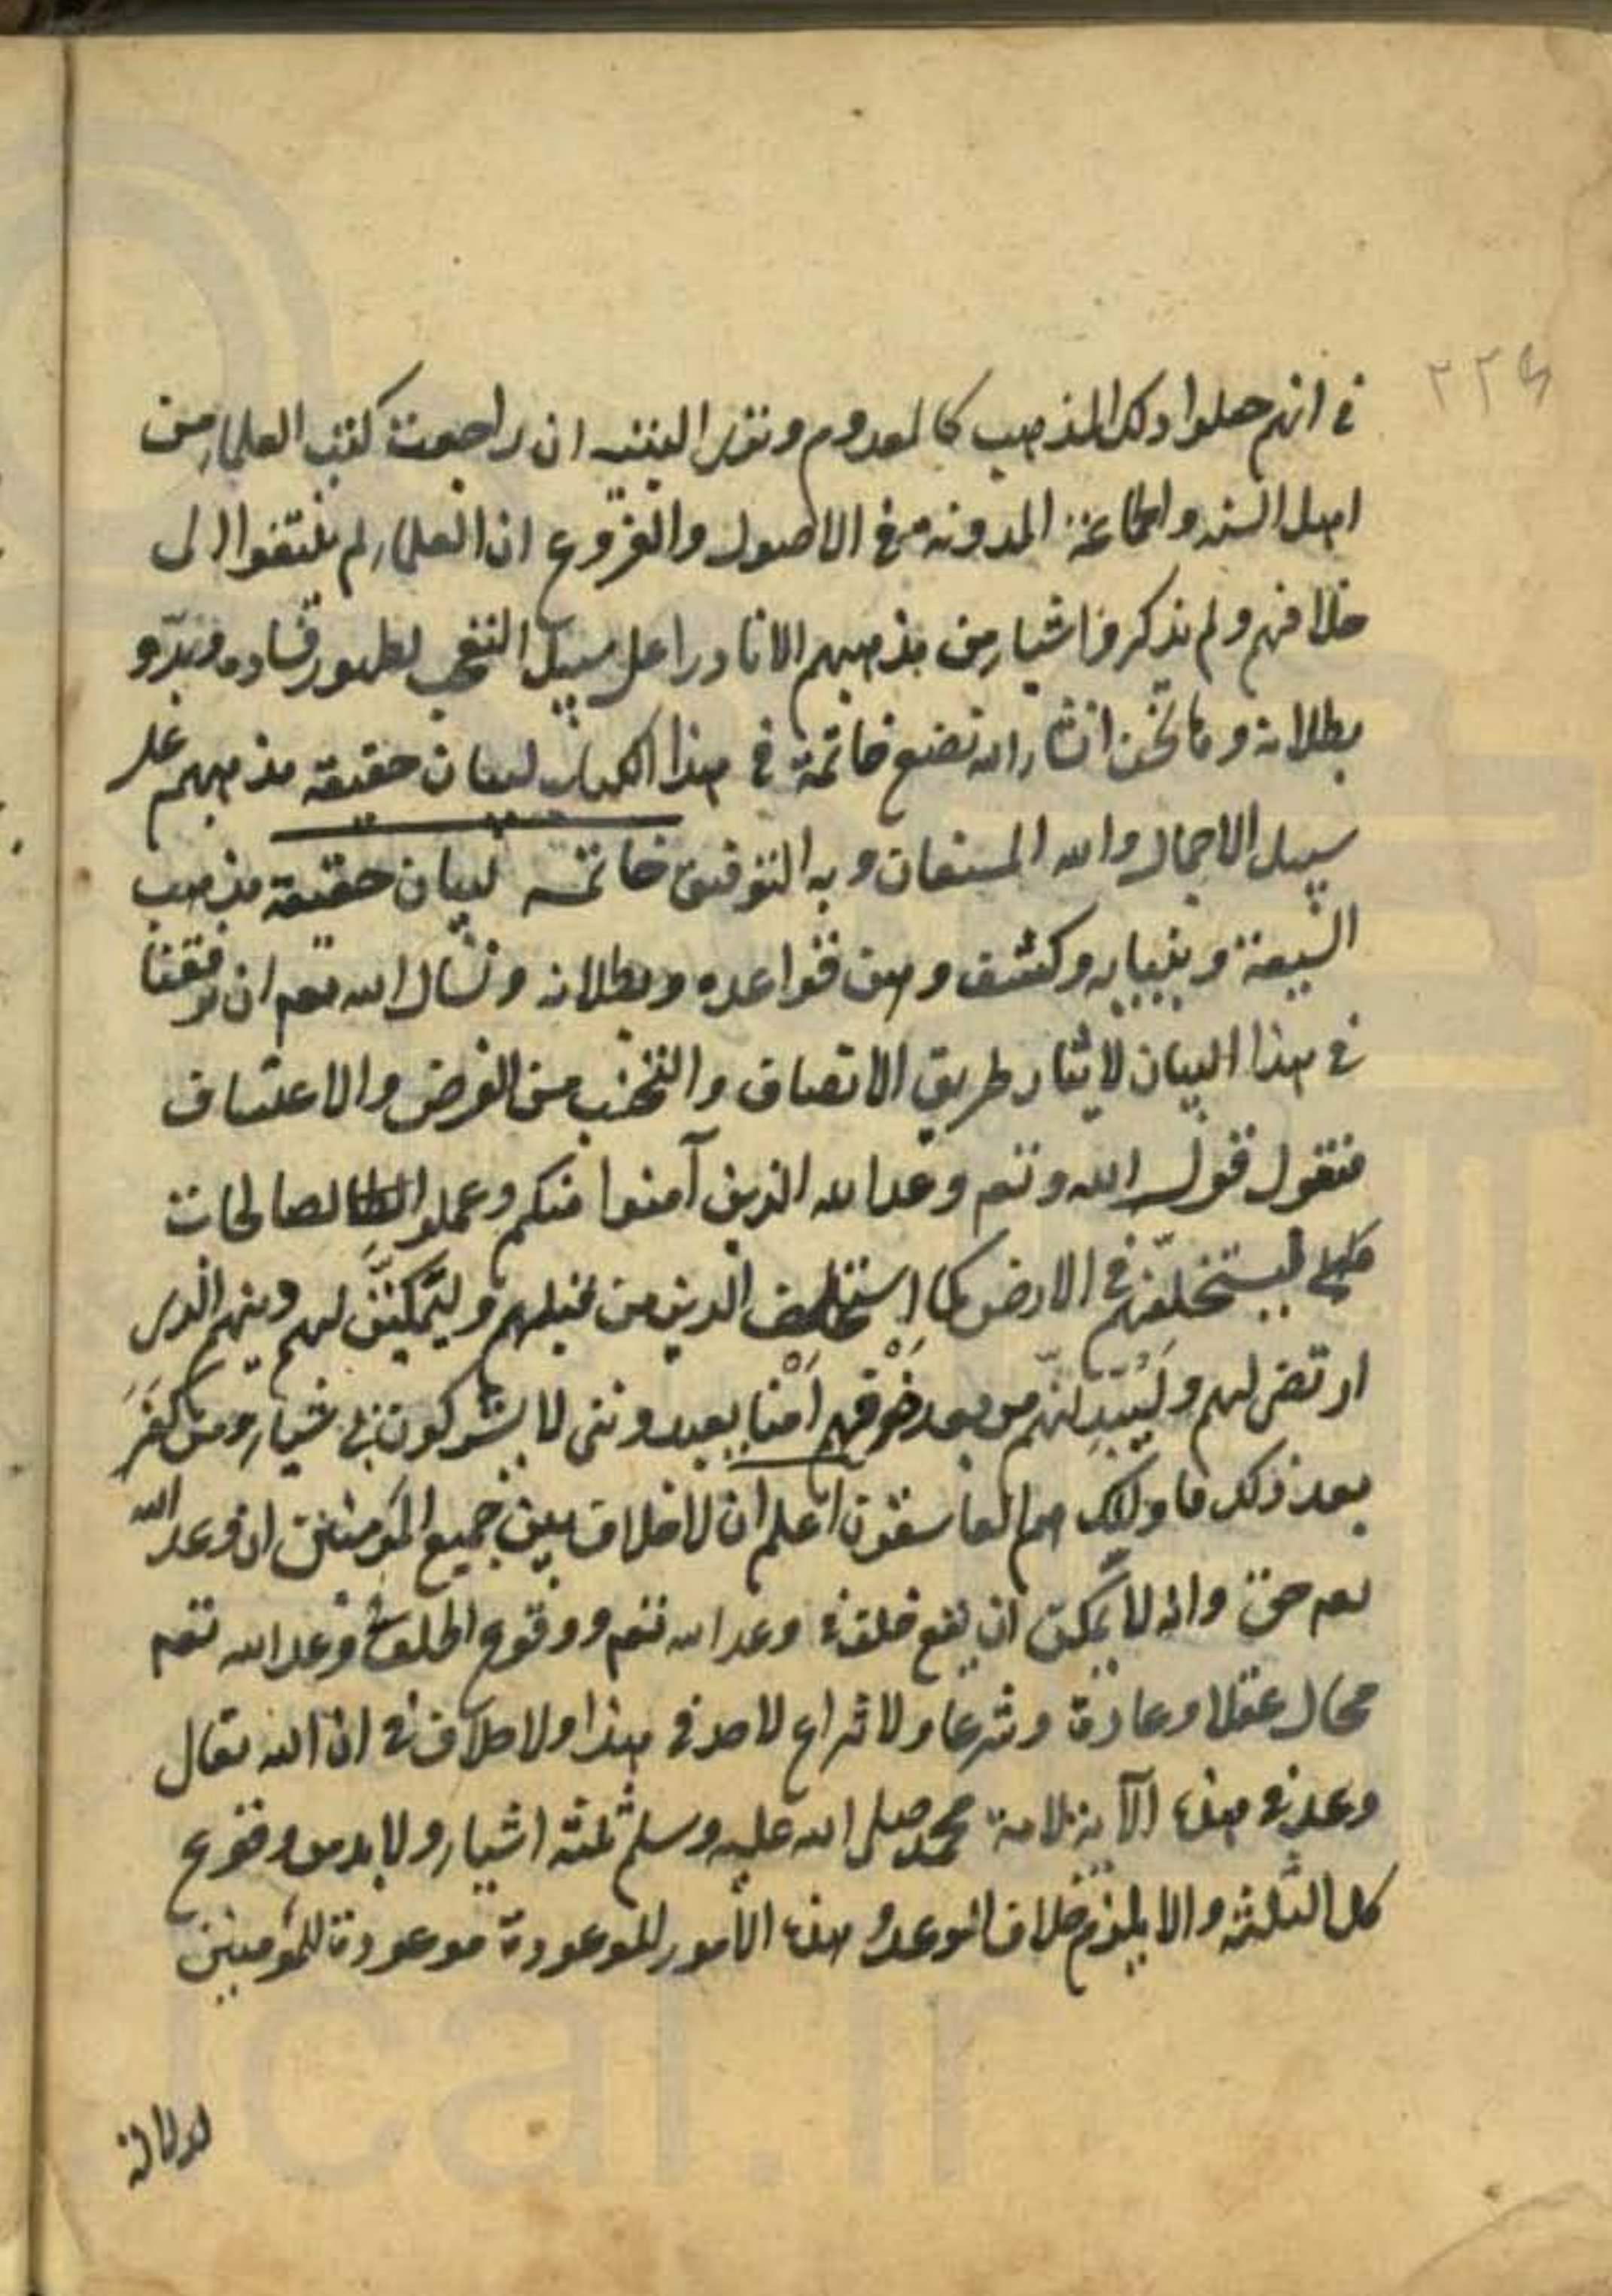 ٢٢٤
في انهم جعلوا ذلك المذهب كالمعدوم وتقرر البتته ان راجعت كتب العلماء من
اهل السنه والجماعة المدونة في الاصول والفروع ان العلماء لم يلتفتوا الى
خلافهم ولم يذكروا شياء من مذهبهم الا نادرا على سبيل التعجب لظهور فساده وبدو
بطلانه وها نحن انشاء الله نضع خاتمة في هذا الكتاب لبيان حقيقة مذهبهم على
سبيل الاجمال والله المستعان وبه التوفيق خاتمه لبيان حقيقة مذهب
الشيعة وبنيانه وكشف وهن قواعده وبطلانه ونسال الله تعم ان يوفقنا
في هذا البيان لايثار طريق الانصاف والتجنب من الغرض والاعتساف
فنقول قول الله وتعم وعد الله الذين آمنوا منكم وعملوا الصالحات
ليستخلفنهم في الارض كما استخلف الذين من قبلهم وليمكنن لهم دينهم الذي
ارتضى لهم وليبدلنهم من بعد خوفهم امنا يعبدونني لا يشركون بي شياء ومن كفر
بعد ذلك فاولئك هم الفاسقون اعلم ان لا خلاف بين جميع المؤمنين ان وعد الله
تعم حق وانه لا يمكن ان يقع خلف في وعد الله تعم ووقوع الخلف في وعد الله تعم
محال عقلا وعادة وشرعا ولا نزاع لاحد في هذا ولا خلاف في ان الله تعالى
وعد في هذه الآية لامة محمد صلى الله عليه وسلم ثلثة اشياء ولا بد من وقوع
كل الثلثه والا يلزم خلاف الوعد وهذه الامور الموعودة موعودة للمؤمنين